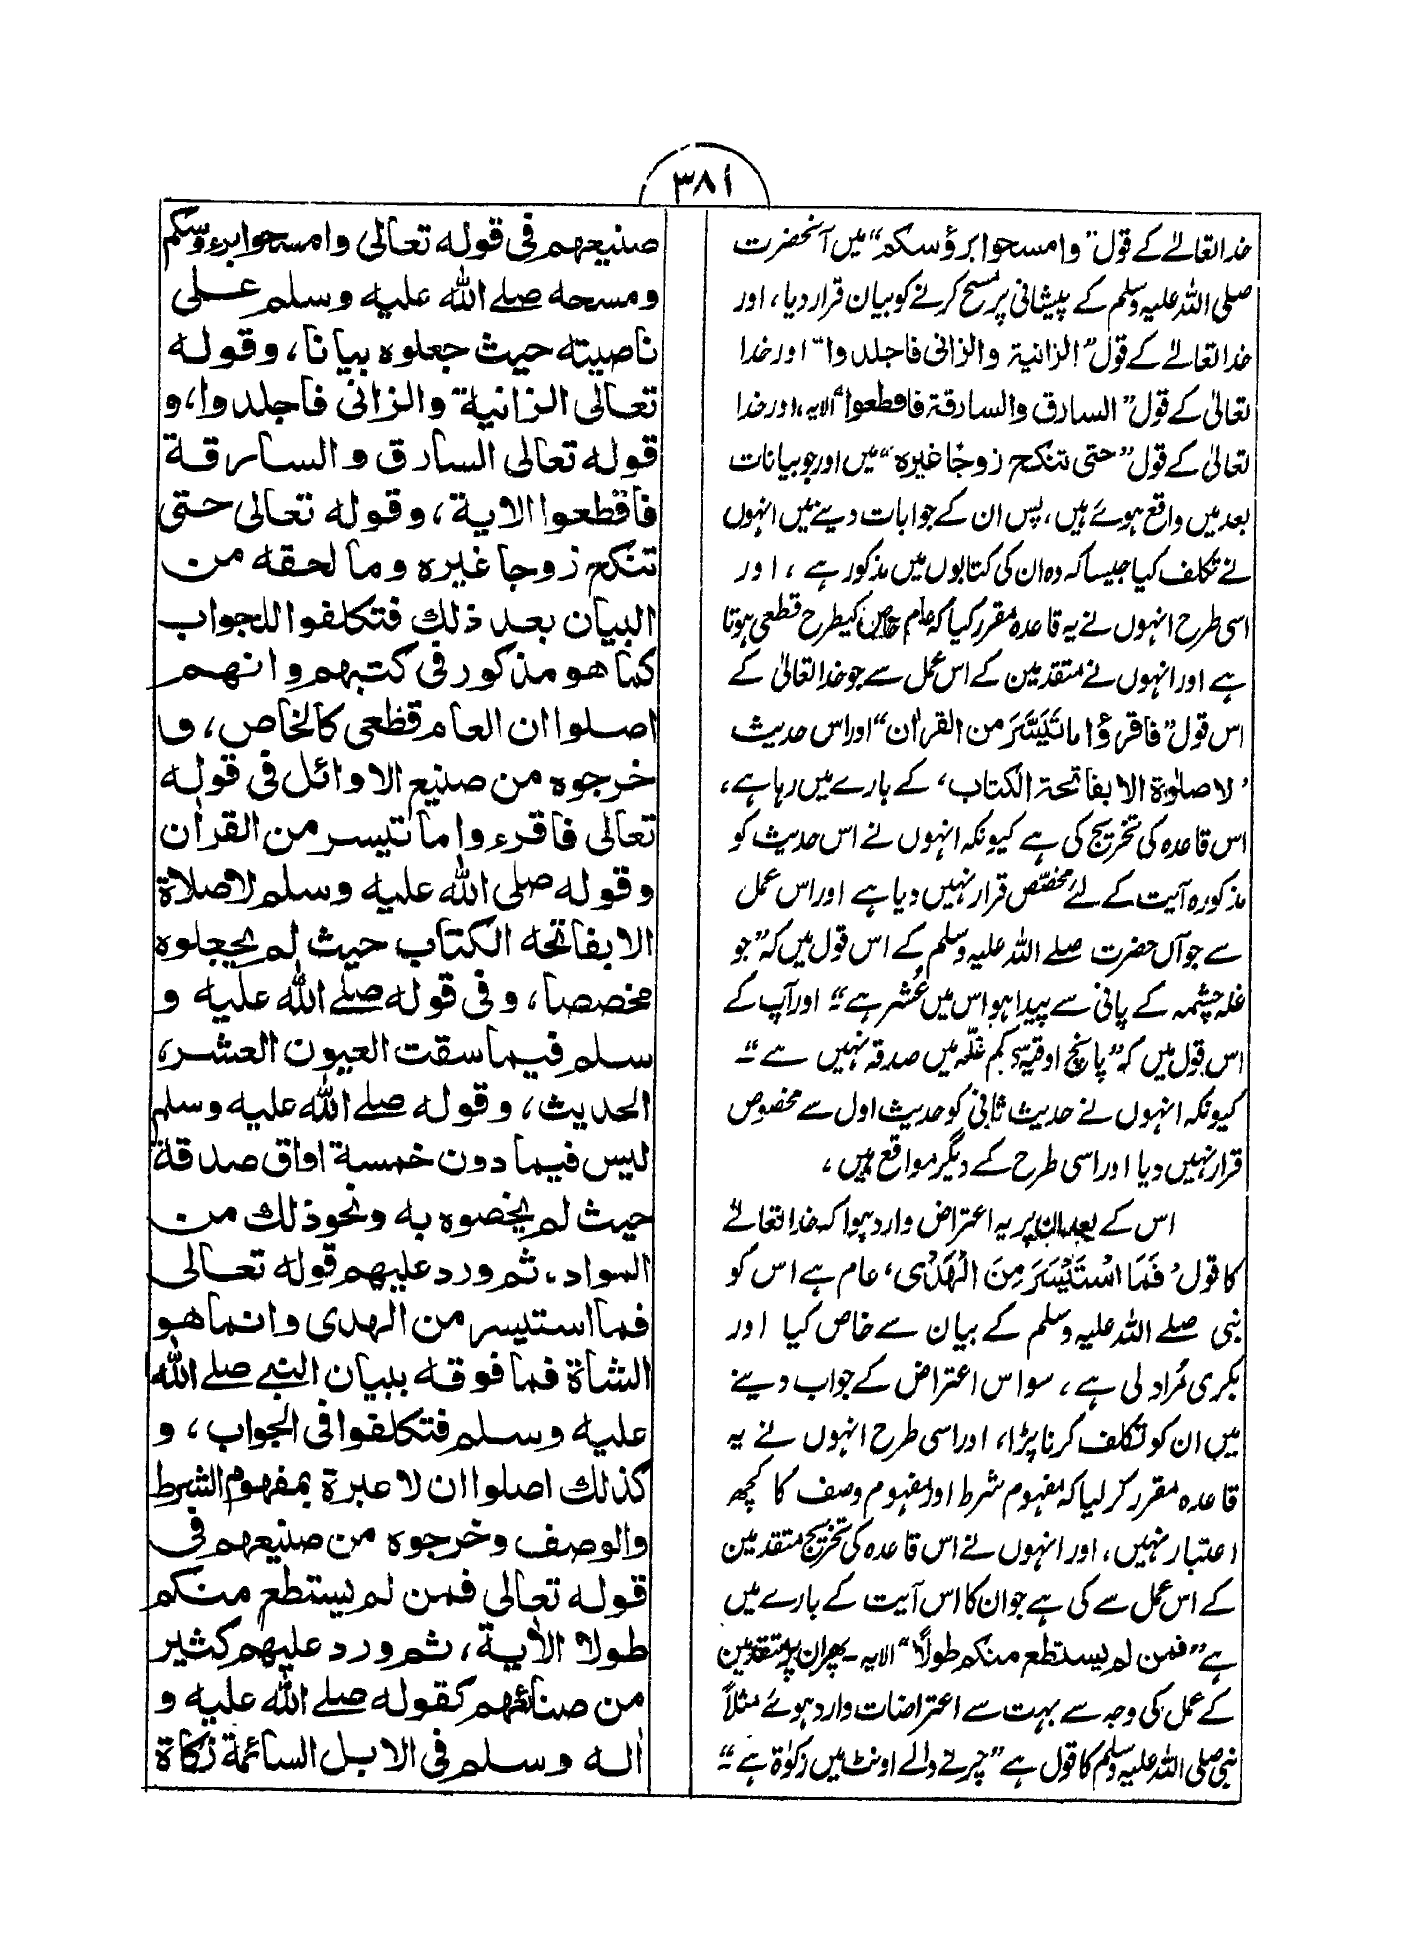 ۳۸۱
خدا تعالےٰ کے قول "وامسحوا برؤسکم" میں آنحضرت
صلی اللہ علیہ وسلم کے پیشانی پر مسح کرنے کو بیان قرار دیا، اور
خدا تعالےٰ کے قول "الزانیة والزانی فاجلدوا" اور خدا
تعالیٰ کے قول "السارق والسارقة فاقطعوا" الایہ، اور خدا
تعالیٰ کے قول "حتی تنکح زوجا غیره" میں اور جو بیانات
بعد میں واقع ہوئے ہیں، پس ان کے جوابات دینے میں انہوں
نے تکلف کیا جیسا کہ وہ ان کی کتابوں میں مذکور ہے ، اور
اسی طرح انہوں نے یہ قاعدہ مقرر کیا کہ عام خاص کیطرح قطعی ہوتا
ہے اور انہوں نے متقدمین کے اس عمل سے جو خدا تعالیٰ کے
اس قول "فاقرؤا ما تَیَسَّرَ من القراٰن" اور اس حدیث
'لا صلوٰة الا بفاتحة الکتاب، کے بارے میں رہا ہے،
اس قاعدہ کی تخریج کی ہے کیونکہ انہوں نے اس حدیث کو
مذکورہ آیت کے لئے مخصّص قرار نہیں دیا ہے اور اس عمل
سے جو آں حضرت صلے اللہ علیہ وسلم کے اس قول میں کہ "جو
غلہ چشمہ کے پانی سے پیدا ہو اس میں عُشر ہے" اور آپ کے
اس قول میں کہ "پانچ اوقیہ سے کم غلّہ میں صدقہ نہیں ہے"۔
کیونکہ انہوں نے حدیث ثانی کو حدیث اول سے مخصوص
قرار نہیں دیا اور اسی طرح کے دیگر مواقع ہیں ،
اس کے بعد ان پر یہ اعتراض وارد ہوا کہ خدا تعالےٰ
کا قول ' فَمَا اسْتَیْسَرَ مِنَ الْهَدْیِ ، عام ہے اس کو
نبی صلے اللہ علیہ وسلم کے بیان سے خاص کیا اور
بکری مُراد لی ہے ، سو اس اعتراض کے جواب دینے
میں ان کو تکلف کرنا پڑا، اور اسی طرح انہوں نے یہ
قاعدہ مقرر کر لیا کہ مفہوم شرط اور مفہوم وصف کا کچھ
اعتبار نہیں، اور انہوں نے اس قاعدہ کی تخریج متقدمین
کے اس عمل سے کی ہے جو ان کا اس آیت کے بارے میں
ہے "فمن لم یستطع منکم طولاً" الایہ - پھر ان پر متقدمین
کے عمل کی وجہ سے بہت سے اعتراضات وارد ہوئے مثلاً
نبی صلی اللہ علیہ وسلم کا قول ہے "چرنے والے اونٹ میں زکوٰة ہے"۔
صنیعهم فی قوله تعالی وامسحوا برءوسکم
ومسحه صلے الله علیه وسلم علی
ناصیته حیث جعلوه بیانا، وقوله
تعالی الزانیة والزانی فاجلدوا، و
قوله تعالی السارق والسارقة
فاقطعوا الایة، وقوله تعالی حتی
تنکح زوجا غیره وما لحقه من
البیان بعد ذلك فتکلفوا للجواب
کما هو مذکور فی کتبهم وانهم
اصلوا ان العام قطعی کالخاص، و
خرجوه من صنیع الاوائل فی قوله
تعالی فاقرءوا ما تیسر من القراٰن
وقوله صلی الله علیه وسلم لا صلاة
الا بفاتحه الکتاب حیث لم یجعلوه
مخصصا، وفی قوله صلے الله علیه و
سلم فیما سقت العیون العشر،
الحدیث، وقوله صلے الله علیه وسلم
لیس فیما دون خمسة اواق صدقة
حیث لم یخصوه به ونحو ذلك من
المواد، ثم ورد علیهم قوله تعالی
فما استیسر من الهدی وانما هو
الشاة فما فوقه ببیان النبی صلے الله
علیه وسلم فتکلفوا فی الجواب، و
کذلك اصلوا ان لا عبرة بمفهوم الشرط
والوصف وخرجوه من صنیعهم فی
قوله تعالی فمن لم یستطع منکم
طولا الاٰیة، ثم ورد علیهم کثیر
من صنائعهم کقوله صلے الله علیه و
اٰله وسلم فی الابل السائمة زکاة